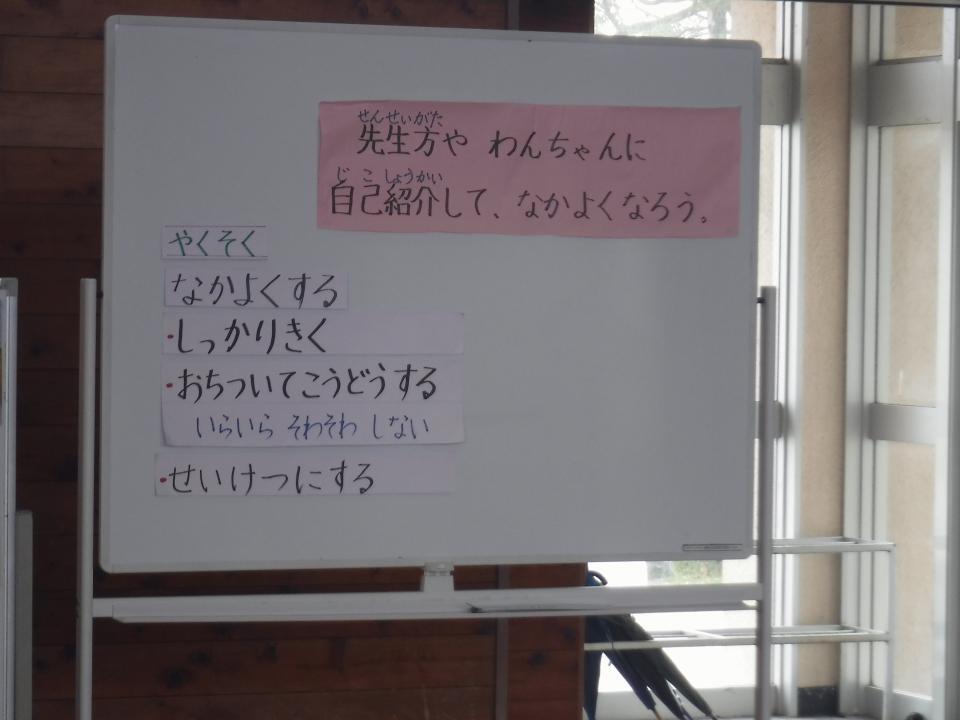 せんせいがた
先生方や わんちゃんに
じこしょうかい
自己紹介して、なかよくなろう。
やくそく
なかよくする
・しっかりきく
・おちついてこうどうする
いらいら そわそわ しない
・せいけつにする